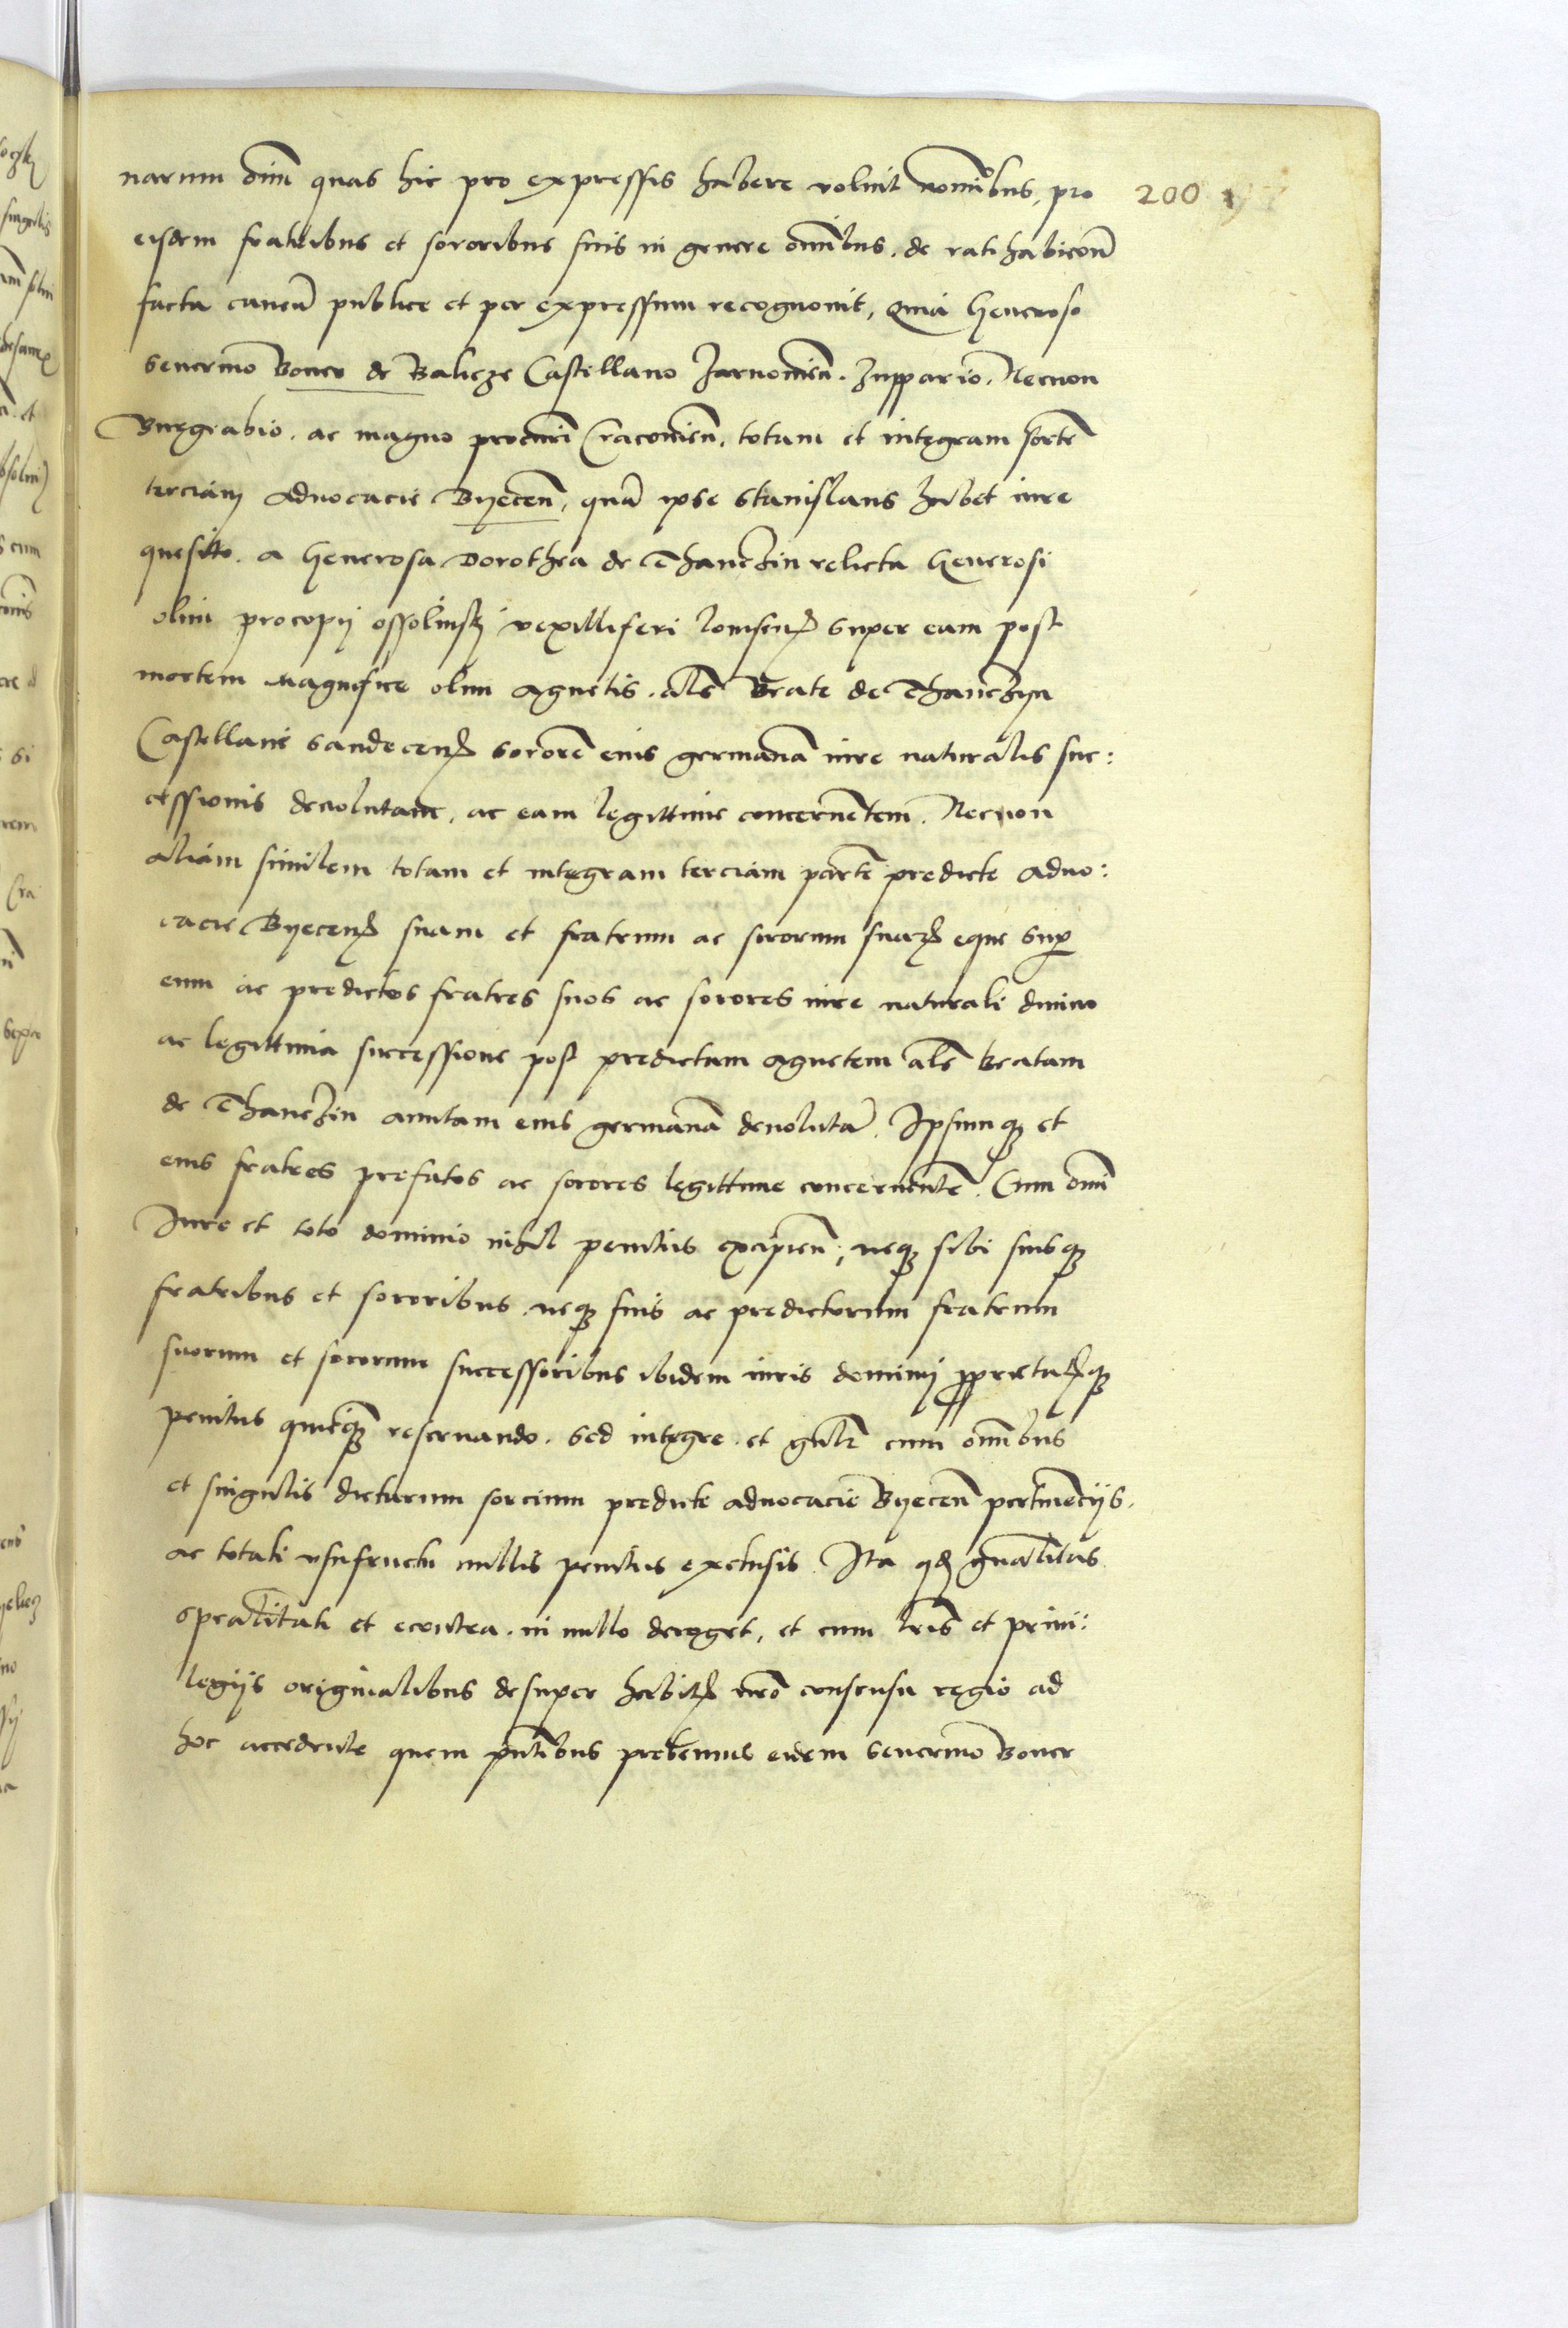 narum diuin quas hic pro expressis habere voluit nominibus, pro 200
eisdem fratribus et sororibus suis in genere omnibus. de ratihabicone
facta caucione publice et per expressum recognovit, Quia Generoso
Severino Boner de Balicze Castellano Zarnowien. Zuppario. Necnon
Burgrabio. ac magno procuri Cracovien. totam et integram sortem
terciam advocacie Byecen, quam ipse Stanislaus habet iure
quesito. a Generosa Dorothea de Thanczin relicta Generosi
olim procopij ossolinskj vexilliferi lomsen super eam post
mortem Magnifice olim Agnetis. als Beate de Thanczyn
Castellane Sandecen sororem eius germanam iure naturalis suc:
cessionis devolutam. ac eam legittime concernentem. Necnon
aliam similem totam et integram terciam partem predicte advo:
cacie Byecen suam et fratrum ac sororum suarum eque super
eum ac predictos fratres suos ac sorores iure naturali divino
ac legittima successione post predictam Agnetem als Beatam
de Thanczin amitam eius germanam devolutam. Ipsumque et
eius fratres prefatos ac sorores legittime concernentem. Cum omni
Iure et toto dominio nihil penitus excipien, neque sibi suisque
fratribus et sororibus. neque suis ac predictorum fratrum
suorum et sororum successoribus ibidem iuris dominij proprietatisque
penitus quicquam reservando. Sed integre. et gnlr cum omnibus
et singulis dictarum sorcium predicte advocacie Byecen pertinencijs.
ac totali usufructu nullis penitus exclusis. Ita qd gnalitas
spealitati et econtra. in nullo deroget, et cum lris et privi:
legijs originalibus desuper habitis nro consensu regio ad
hoc accedente quem pntibus prebemus eidem Severino Boner